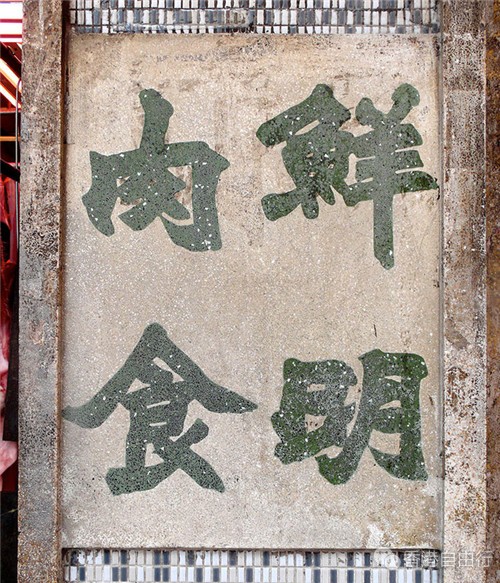 鮮明
肉食
@香港自由行